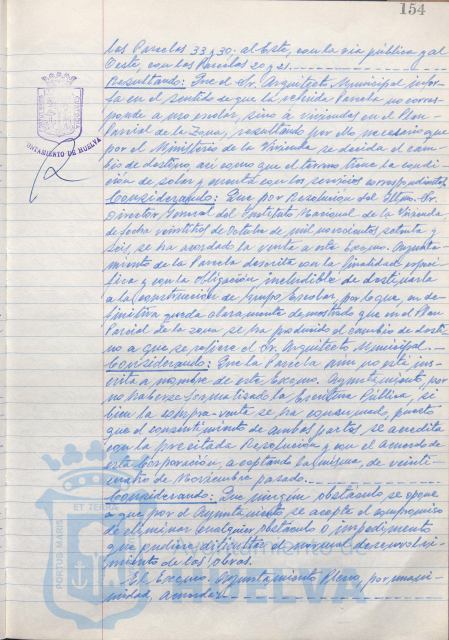 154
las Parcelas 33 y 30; al Este, con la via pública y al
Oeste, con las Parcelas 20 y 21.
Resultando: Que el Sr. Arquitecto Municipal infor-
ma en el sentido de que la referida Parcela no corres-
ponde a uso escolar, sino a viviendas en el Plan
Parcial de la Zona, resultando por ello necesario que
por el Ministerio de la Vivienda se decida el cam-
bio de destino, así como que el terreno tiene la condi-
ción de solar y cuenta con los servicios correspondientes.
Considerando: Que por Resolución del Iltmo. Sr.
Director General del Instituto Nacional de la Vivienda
de fecha veintitres de Octubre de mil novecientos setenta y
seis, se ha acordado la venta a este Excmo. Ayunta-
miento de la Parcela descrita con la finalidad especí-
fica y con la obligación ineludible de destinarla
a la construcción de Grupo Escolar, por lo que, en de-
finitiva queda claramente demostrado que en el Plan
Parcial de la zona se ha producido el cambio de desti-
no a que se refiere el Sr. Arquitecto Municipal.
Considerando: Que la Parcela aún no está ins-
crita a nombre de este Excmo. Ayuntamiento, por
no haberse formalizado la Escritura Pública, si
bien la compra-venta se ha consumado, puesto
que el consentimiento de ambas partes se acredita
con la precitada Resolución y con el acuerdo de
esta Corporación, aceptando la misma, de veinti-
cuatro de Noviembre pasado.
Considerando: Que ningun obstáculo se opone
a que por el Ayuntamiento se acepte el compromiso
de eliminar cualquier obstáculo o impedimento
que pudiera dificultar el normal desenvolvi-
miento de las obras.
El Excmo. Ayuntamiento Pleno, por unani-
midad, acuerda:
AYUNTAMIENTO DE HUELVA
PORTUS MARIS
ET TERRÆ
HUELVA